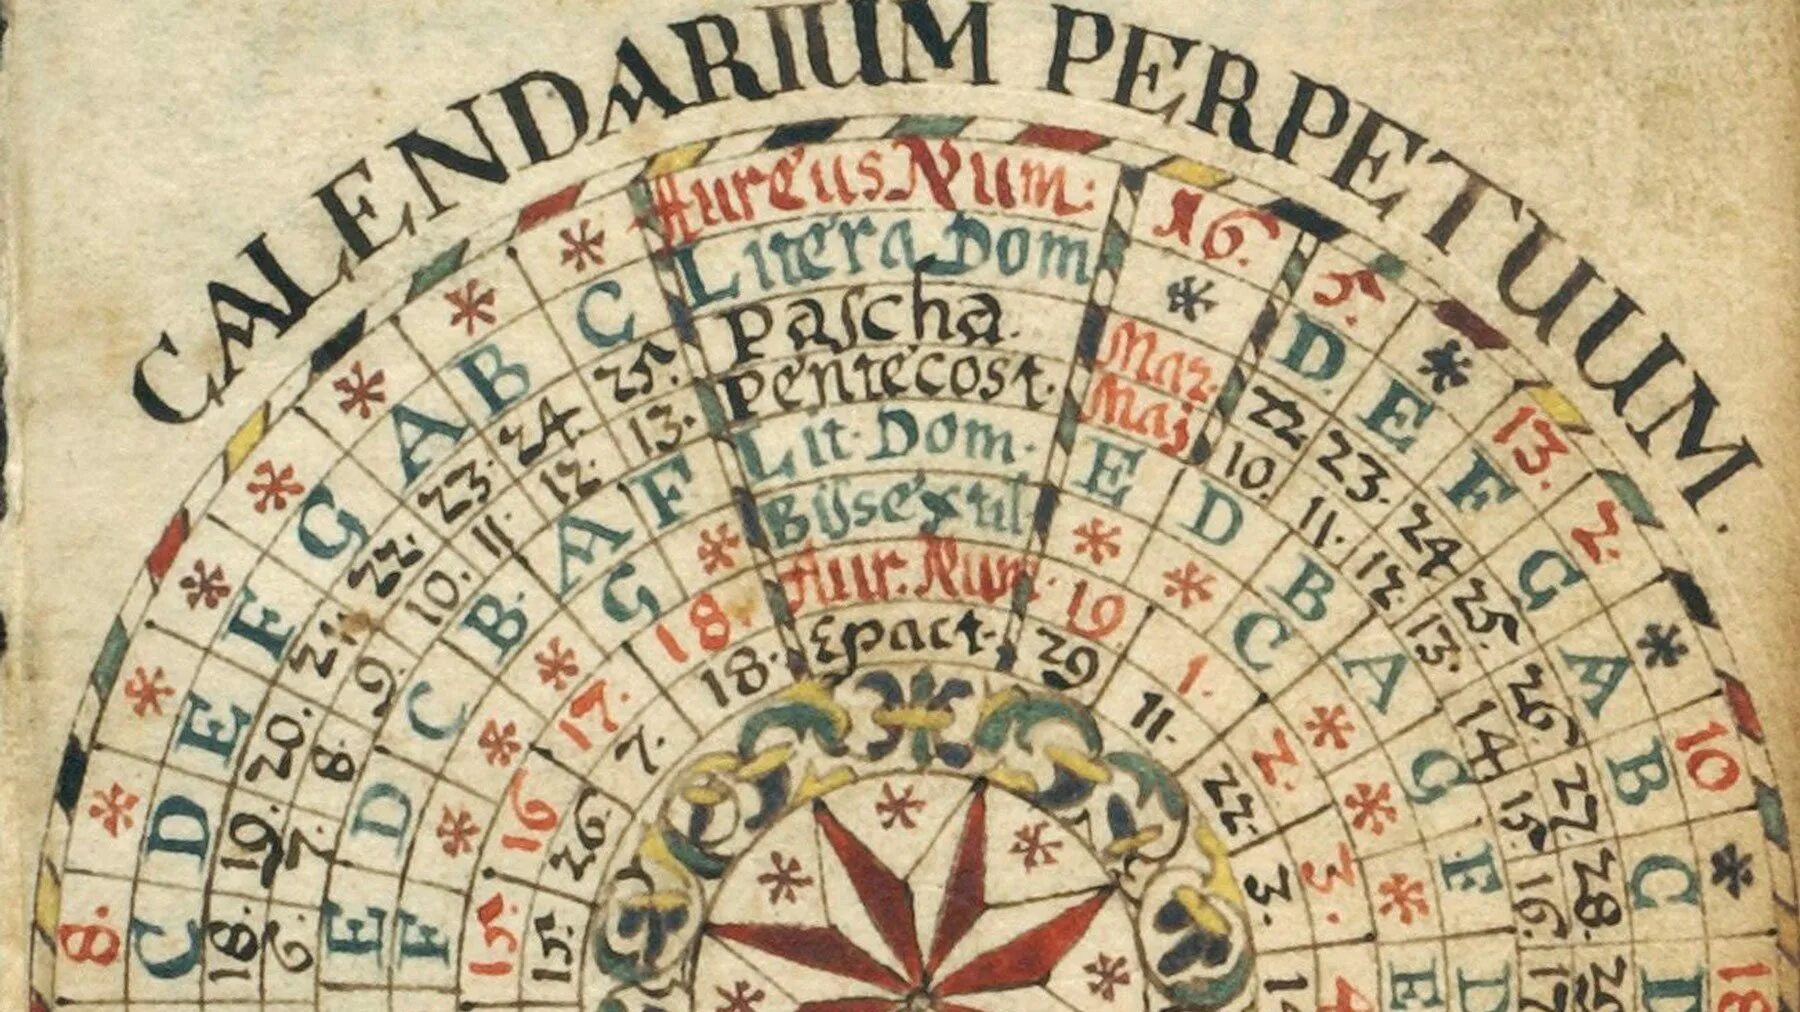 CALENDARIUM PERPETUUM.
8. * * * * * * * Aureus Num: 16. 5. * 13. 2. * 10 * 18
C D E F G A B C Litera Dom * D E F G A B C D
18. 19. 20. 21. 22. 23. 24. 25. Pascha. Mar. 22 23. 24 25. 26 27. 28.
6. 7. 8. 9. 10. 11. 12. 13. Pentecost. Maj 10. 11. 12. 13. 14 15. 16. 17
E D C B. A F Lit. Dom. E D B A G F D
F * * * G * Bissextil * * C * * * E
15. 16 17. 18. Aur. Num. 19. 1. 2. 3. 4
15. 26. 7. 18. Epact. 29 11. 22. 3.